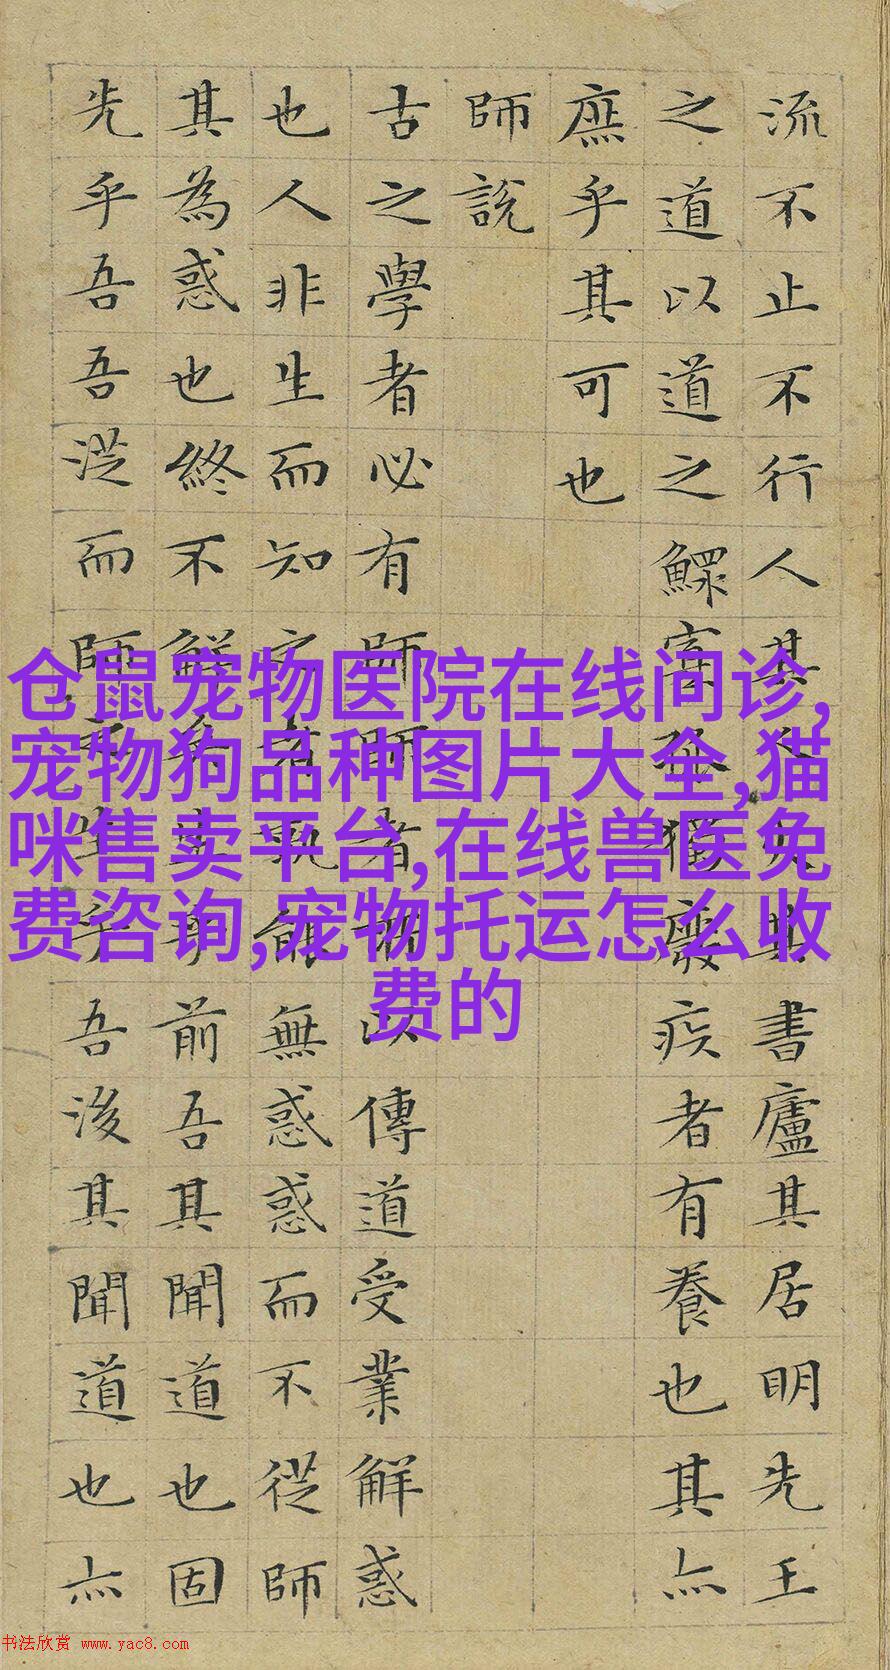 流不止不行人其人火其書廬其居明先王
之道以道之鰥寡孤獨廢疾者有養也其亦
庶乎其可也
師說
古之學者必有師師者所以傳道受業解惑
也人非生而知之者孰能無惑惑而不從師
其為惑也終不解矣生乎前吾其聞道也固
先乎吾吾從而師之生乎吾後其聞道也亦
仓鼠宠物医院在线问诊,
宠物狗品种图片大全,猫
咪售卖平台,在线兽医免
费咨询,宠物托运怎么收
费的
书法欣赏 www.yac8.com